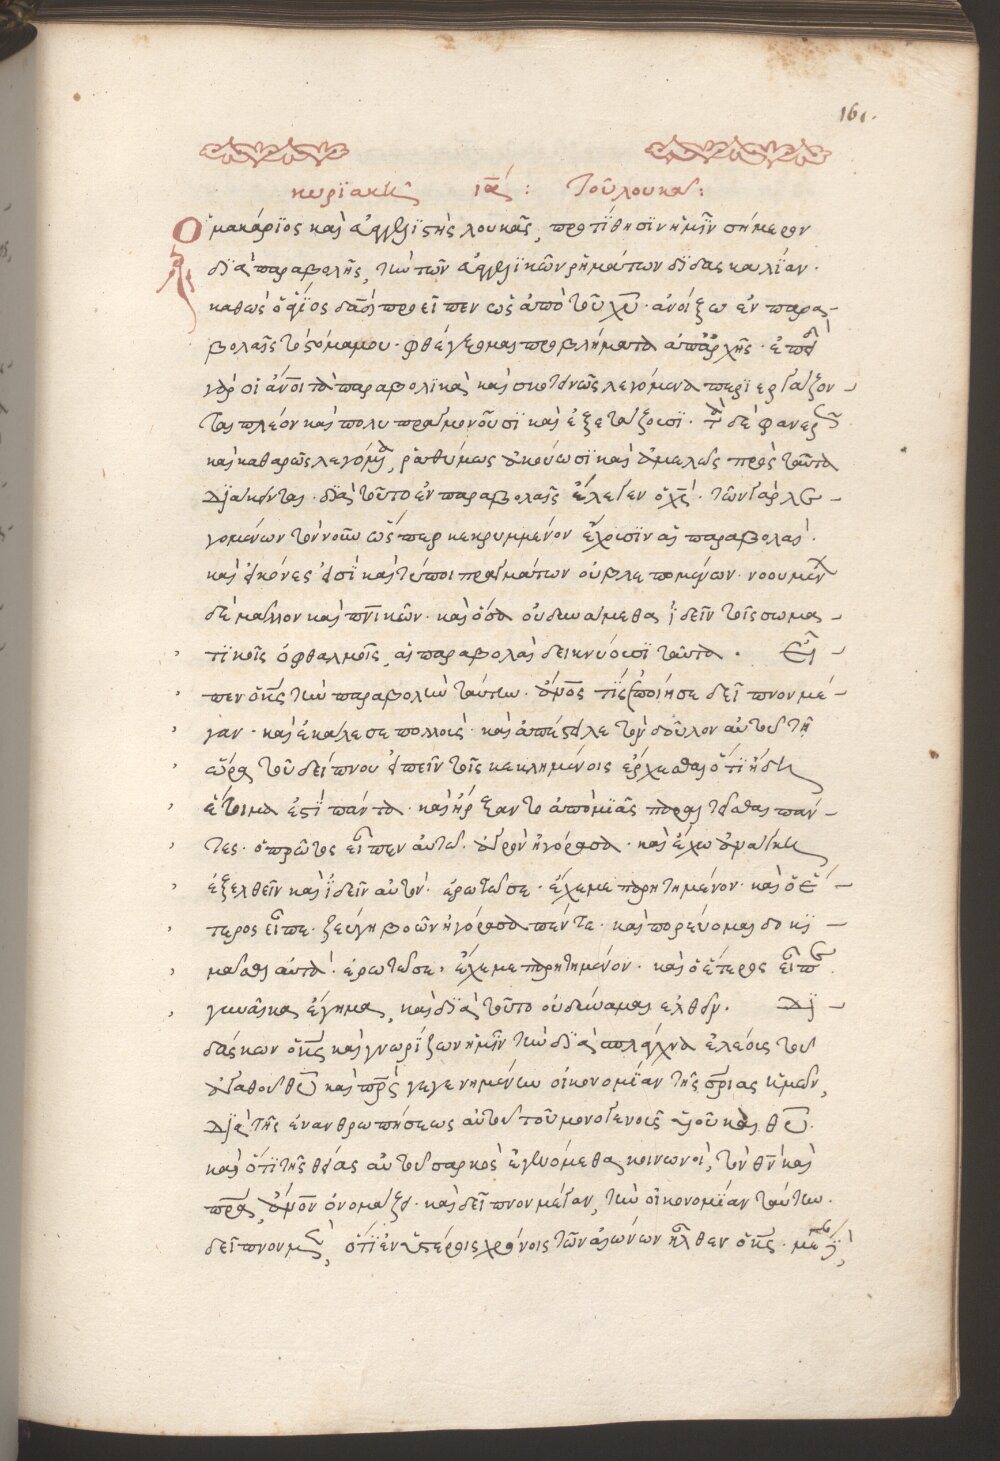 161.
κυριακῆ ια΄: τοῦ λουκᾶ:
Ὁ μακάριος καὶ εὐαγγελιστὴς λουκᾶς, προτίθησιν ἡμῖν σήμερον
διὰ παραβολῆς, τὴν τῶν εὐαγγελικῶν ῥημάτων διδασκαλίαν.
καθὼς ὁ ἅγιος δαδ προεῖπεν ὡς ἀπὸ τοῦ χυ· ἀνοίξω ἐν παρα-
βολαῖς τὸ στόμα μου· φθέγξομαι προβλήματα ἀπ' ἀρχῆς· ἐπεὶ
γὰρ οἱ ἄνοι τὰ παραβολικὰ καὶ σκοτεινῶς λεγόμενα περιεργάζον-
ται πλέον καὶ πολυπραγμονοῦσι καὶ ἐξετάζουσι· τὰ δὲ φανερῶς
καὶ καθαρῶς λεγόμενα, ῥαθύμως ἀκούωσι καὶ ἀμελῶς πρὸς ταῦτα
διάκεινται· διὰ τοῦτο ἐν παραβολαῖς ἔλεγεν ὁ χς· τῶν γὰρ λε-
γομένων τὸν νοῦν ὥσπερ κεκρυμμένον ἔχουσιν αἱ παραβολαί·
καὶ εἰκόνες εἰσὶ καὶ τύποι πραγμάτων οὐ βλεπομένων· νοουμένων
δὲ μᾶλλον καὶ πνικῶν· καὶ ὅσα οὐ δυνάμεθα ἰδεῖν τοῖς σωμα-
τικοῖς ὀφθαλμοῖς, αἱ παραβολαὶ δεικνύουσι ταῦτα. Εἶ-
πεν ὁ κς τὴν παραβολὴν ταύτην· ἄνος τὶς ἐποίησε δεῖπνον μέ-
γαν· καὶ ἐκάλεσε πολλούς· καὶ ἀπέστειλε τὸν δοῦλον αὐτοῦ τῇ
ὥρᾳ τοῦ δείπνου εἰπεῖν τοῖς κεκλημένοις ἔρχεσθαι ὅτι ἤδη
ἕτοιμα ἐστὶ πάντα· καὶ ἤρξαντο ἀπὸ μιᾶς παραιτεῖσθαι πάν-
τες· ὁ πρῶτος εἶπεν αὐτῷ· ἀγρὸν ἠγόρασα· καὶ ἔχω ἀνάγκην
ἐξελθεῖν καὶ ἰδεῖν αὐτόν· ἐρωτῶ σε· ἔχε με παρητημένον· καὶ ὁ ἕ-
τερος εἶπε· ζεύγη βοῶν ἠγόρασα πέντε· καὶ πορεύομαι δοκι-
μάσαι αὐτά· ἐρωτῶ σε, ἔχε με παρητημένον· καὶ ὁ ἕτερος εἶπε
γυναῖκα ἔγημα, καὶ διὰ τοῦτο οὐ δύναμαι ἐλθεῖν. Δι-
δάσκων ὁ κς καὶ γνωρίζων ἡμῖν τὴν διὰ σπλάγχνα ἐλέους τοῦ
ἀγαθοῦ θυ καὶ πρς γεγενημένην οἰκονομίαν τῆς σριας ἡμῶν,
διὰ τῆς ἐνανθρωπήσεως αὐτοῦ τοῦ μονογενοῦς υἱοῦ καὶ θυ.
καὶ ὅτι τῆς θείας αὐτοῦ σαρκὸς ἐγενόμεθα κοινωνοί, τὸν θν καὶ
πρα, ἄνον ὀνομάζει· καὶ δεῖπνον μέγαν, τὴν οἰκονομίαν ταύτην.
δεῖπνον μὲν, ὅτι ἐν ὑστέροις χρόνοις τῶν αἰώνων ἦλθεν ὁ κς·